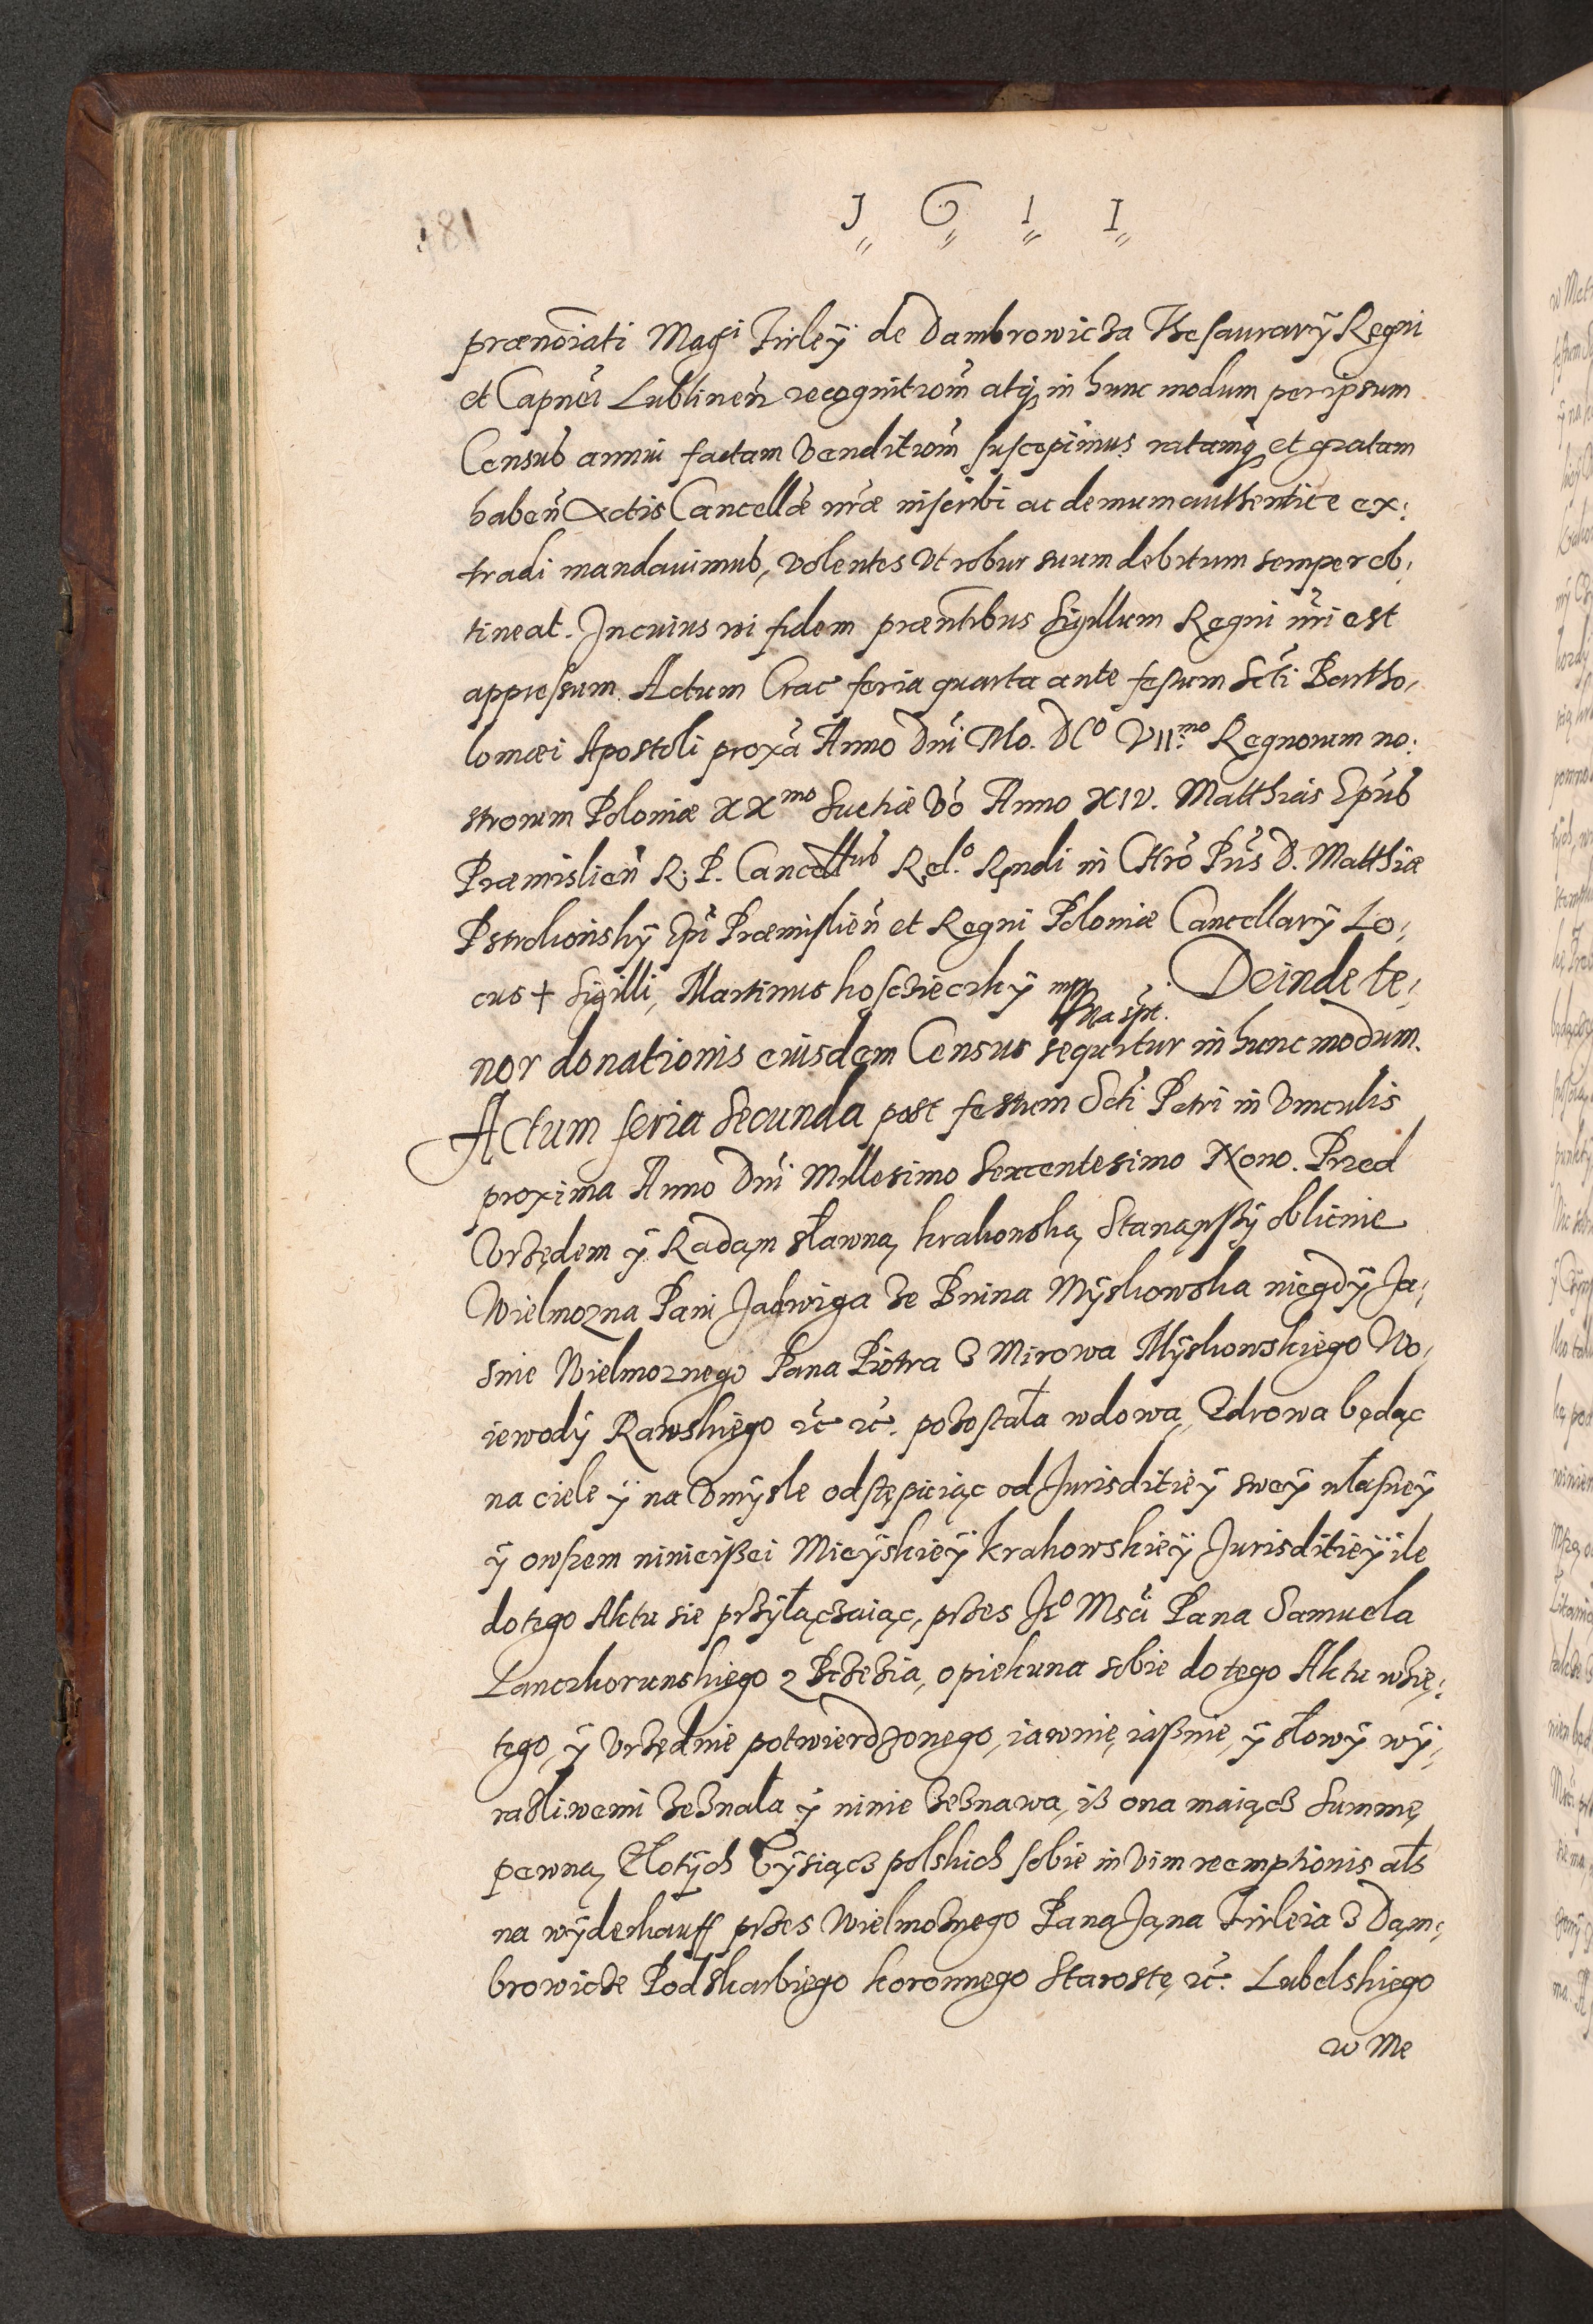 J 6 1 I
prænõiati Magᶜⁱ Firleÿ de Dambrowicza Thesaurarÿ Regni
et Capnei Lublinen̄ recognitiom̄ atq; in hunc modum per ipsum
Census annui factam Venditiom̄ suscepimus ratamq; et gratam
haben̄ Actis Cancellæ nr̄æ inscribi ac demum authentice ex:
tradi mandauimus, Volentes Vt robur suum debitum semper ob:
tineat. In cuius rei fidem præntibus Sigillum Regni nr̄i est
appressum. Actum Crac feria quarta ante festum Scti Bartho,
lomæi Apostoli proxā Anno Dni Mo. DCº VIIᵐº Regnorum no:
strorum Poloniæ XXᵐº Suetiæ Vō Anno XIV. Matthias Epūs
Præmislien̄ R. P. Cancellᵘˢ Relº Rṇdi in Chrō Pris D. Matthiæ
Pstrokonskÿ Epi Præmislien̄ et Regni Poloniæ Cancellarÿ Lo:
cus + Sigilli, Martinus kosczieczkÿ mp Deinde te:
nor donationis eiusdem Census sequitur in hunc modum.
Actum feria Secunda post festum Scti Petri in Vinculis
proxima Anno Dni Millesimo Sexcentesimo Nono. Przed
Vrzędem ÿ Radąm sławną krakowską Stanąwszÿ oblicznie
Wielmozna Pani Jadwiga ze Bnina Mÿskowska niegdÿ Ja:
snie Wielmoznego Pana Piotra z Mirowa Mÿskowskiego Wo:
iewodÿ Rawskiego rc̄ rc̄. pozostała wdowa, Zdrowa będąc
na ciele ÿ na Vmÿsle odstępuiąc od Jurisditieÿ sweÿ własneÿ
ÿ owszem ninieiszei Mieÿskieÿ krakowskieÿ Jurisditieÿ ile
do tego Aktu sie przÿłączaiąc, przes Jeº Msci Pana Samuela
Lanczkorunskiego z Brzezia, opiekuna sobie do tego Aktu wzię:
tego, ÿ Vrzędnie potwierdzonego, iawnie, iasznie, ÿ słowÿ wÿ:
razliwemi zeznała ÿ ninie zeznawa, iz ona maiącz Summę
pewną Złotÿch Tÿsiącz polskich sobie in Vim reemptionis als
na wÿderkauff przes Wielmoznego Pana Jana Firleia z Dąm:
browicze Podskarbiego koronnego Starostę rc̄. Lubelskiego
w Me